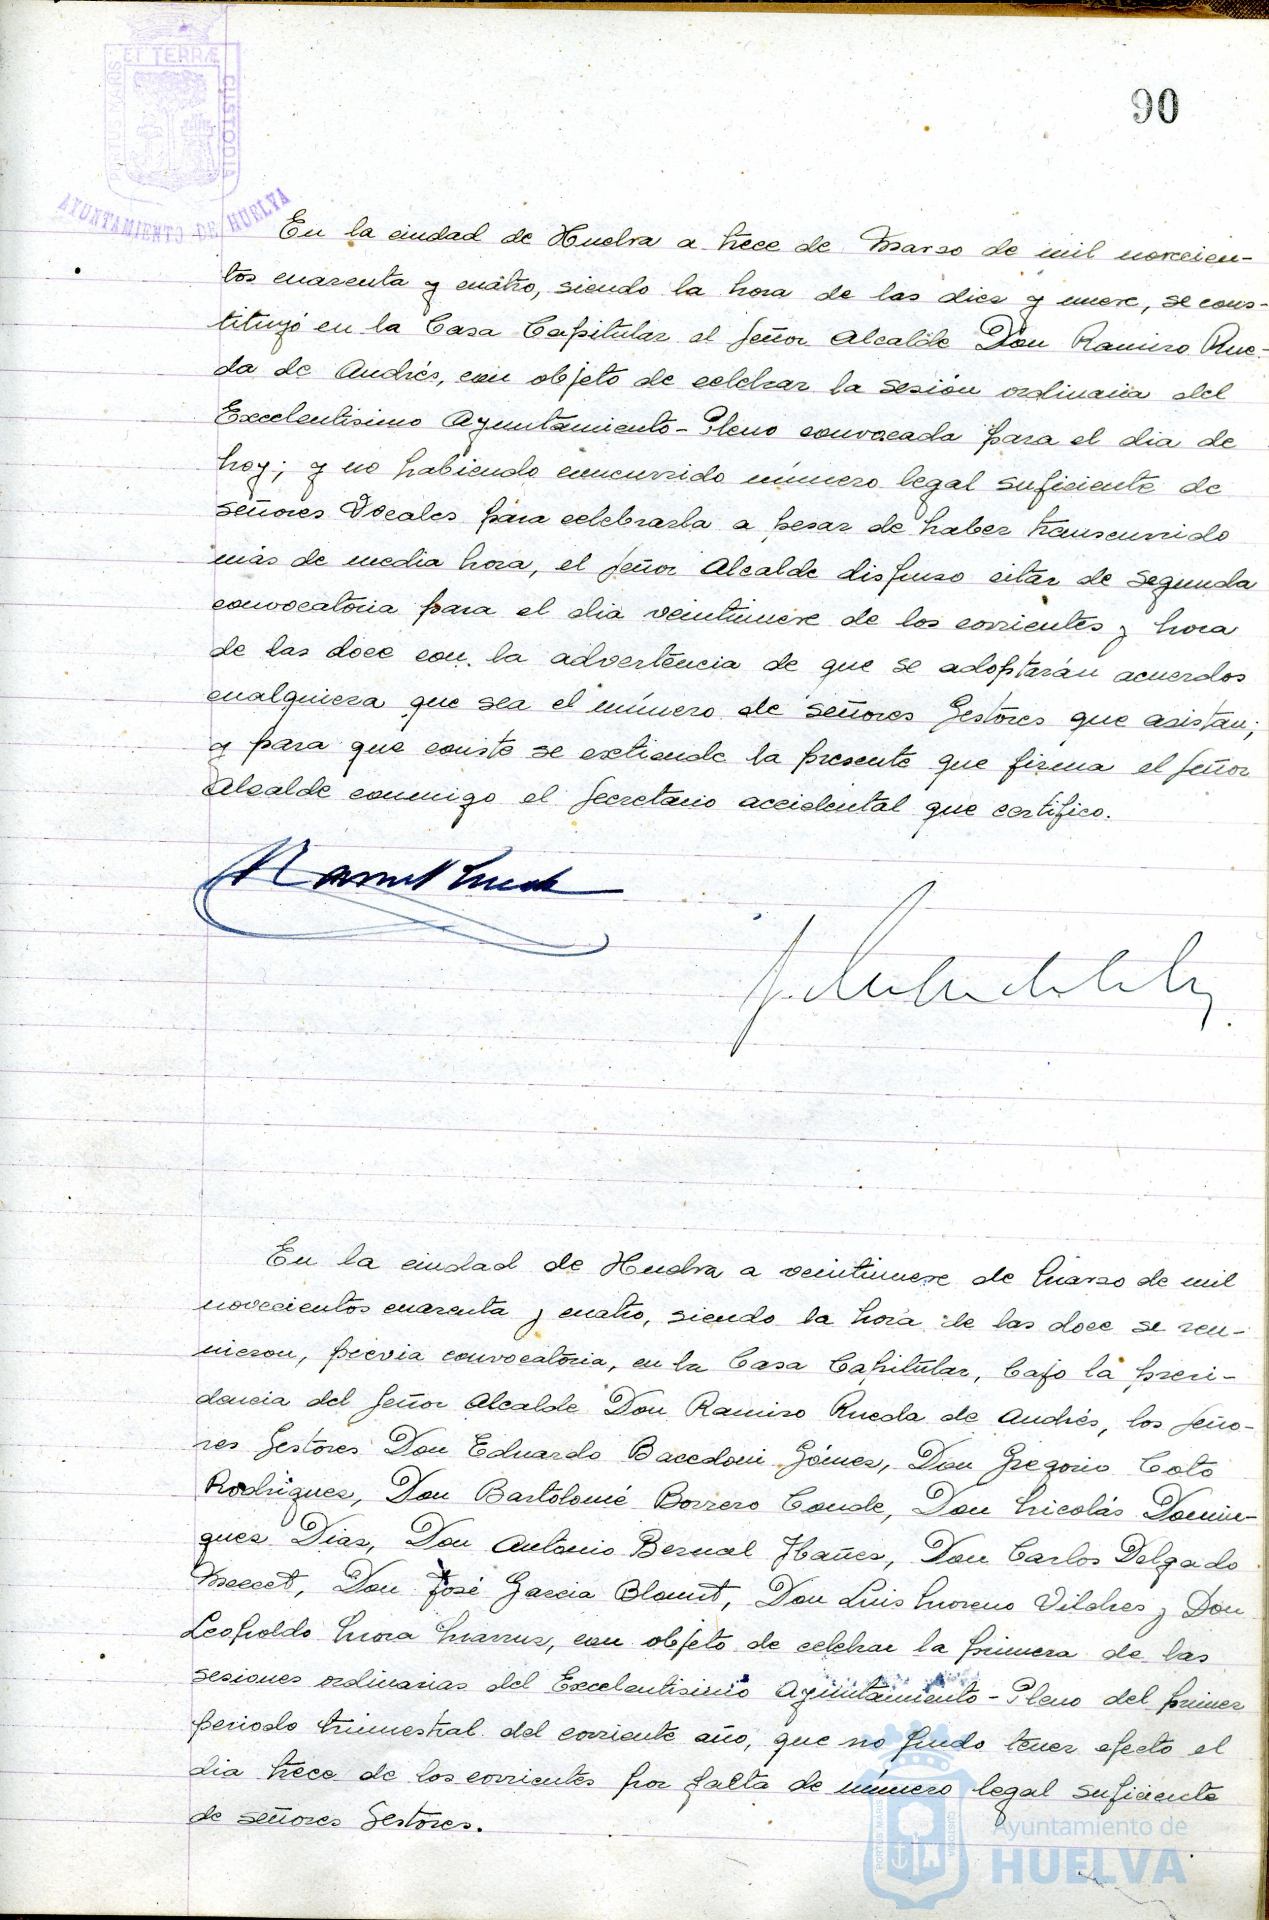 ET TERRÆ
PORTUS MARIS
CUSTODIA
AYUNTAMIENTO DE HUELVA
90
En la ciudad de Huelva a trece de Marzo de mil novecien-
tos cuarenta y cuatro, siendo la hora de las diez y nueve, se cons-
tituyó en la Casa Capitular el Señor Alcalde Don Ramiro Rue-
da de Andrés, con objeto de celebrar la sesión ordinaria del
Excelentisimo Ayuntamiento-Pleno convocada para el dia de
hoy; y no habiendo concurrido número legal suficiente de
señores Vocales para celebrarla a pesar de haber transcurrido
más de media hora, el Señor Alcalde dispuso citar de segunda
convocatoria para el dia veintinueve de los corrientes y hora
de las doce con la advertencia de que se adoptarán acuerdos
cualquiera que sea el número de señores Gestores que asistan;
y para que conste se extiende la presente que firma el Señor
Alcalde conmigo el Secretario accidental que certifico.
En la ciudad de Huelva a veintinueve de Marzo de mil
novecientos cuarenta y cuatro, siendo la hora de las doce se reu-
nieron, previa convocatoria, en la Casa Capitular, bajo la presi-
dencia del Señor Alcalde Don Ramiro Rueda de Andrés, los Seño-
res Gestores Don Eduardo Bacedoni Gómez, Don Gregorio Coto
Rodriguez, Don Bartolomé Borrero Conde, Don Nicolás Domin-
guez Diaz, Don Antonio Bernal Ibañez, Don Carlos Delgado
Don José Garcia Blount, Don Luis Moreno Vilches y Don
Leopoldo Mora con objeto de celebrar la primera de las
sesiones ordinarias del Excelentisimo Ayuntamiento-Pleno del primer
periodo trimestral del corriente año, que no pudo tener efecto el
dia trece de los corrientes por falta de número legal suficiente
de señores Gestores.
Ayuntamiento de
HUELVA